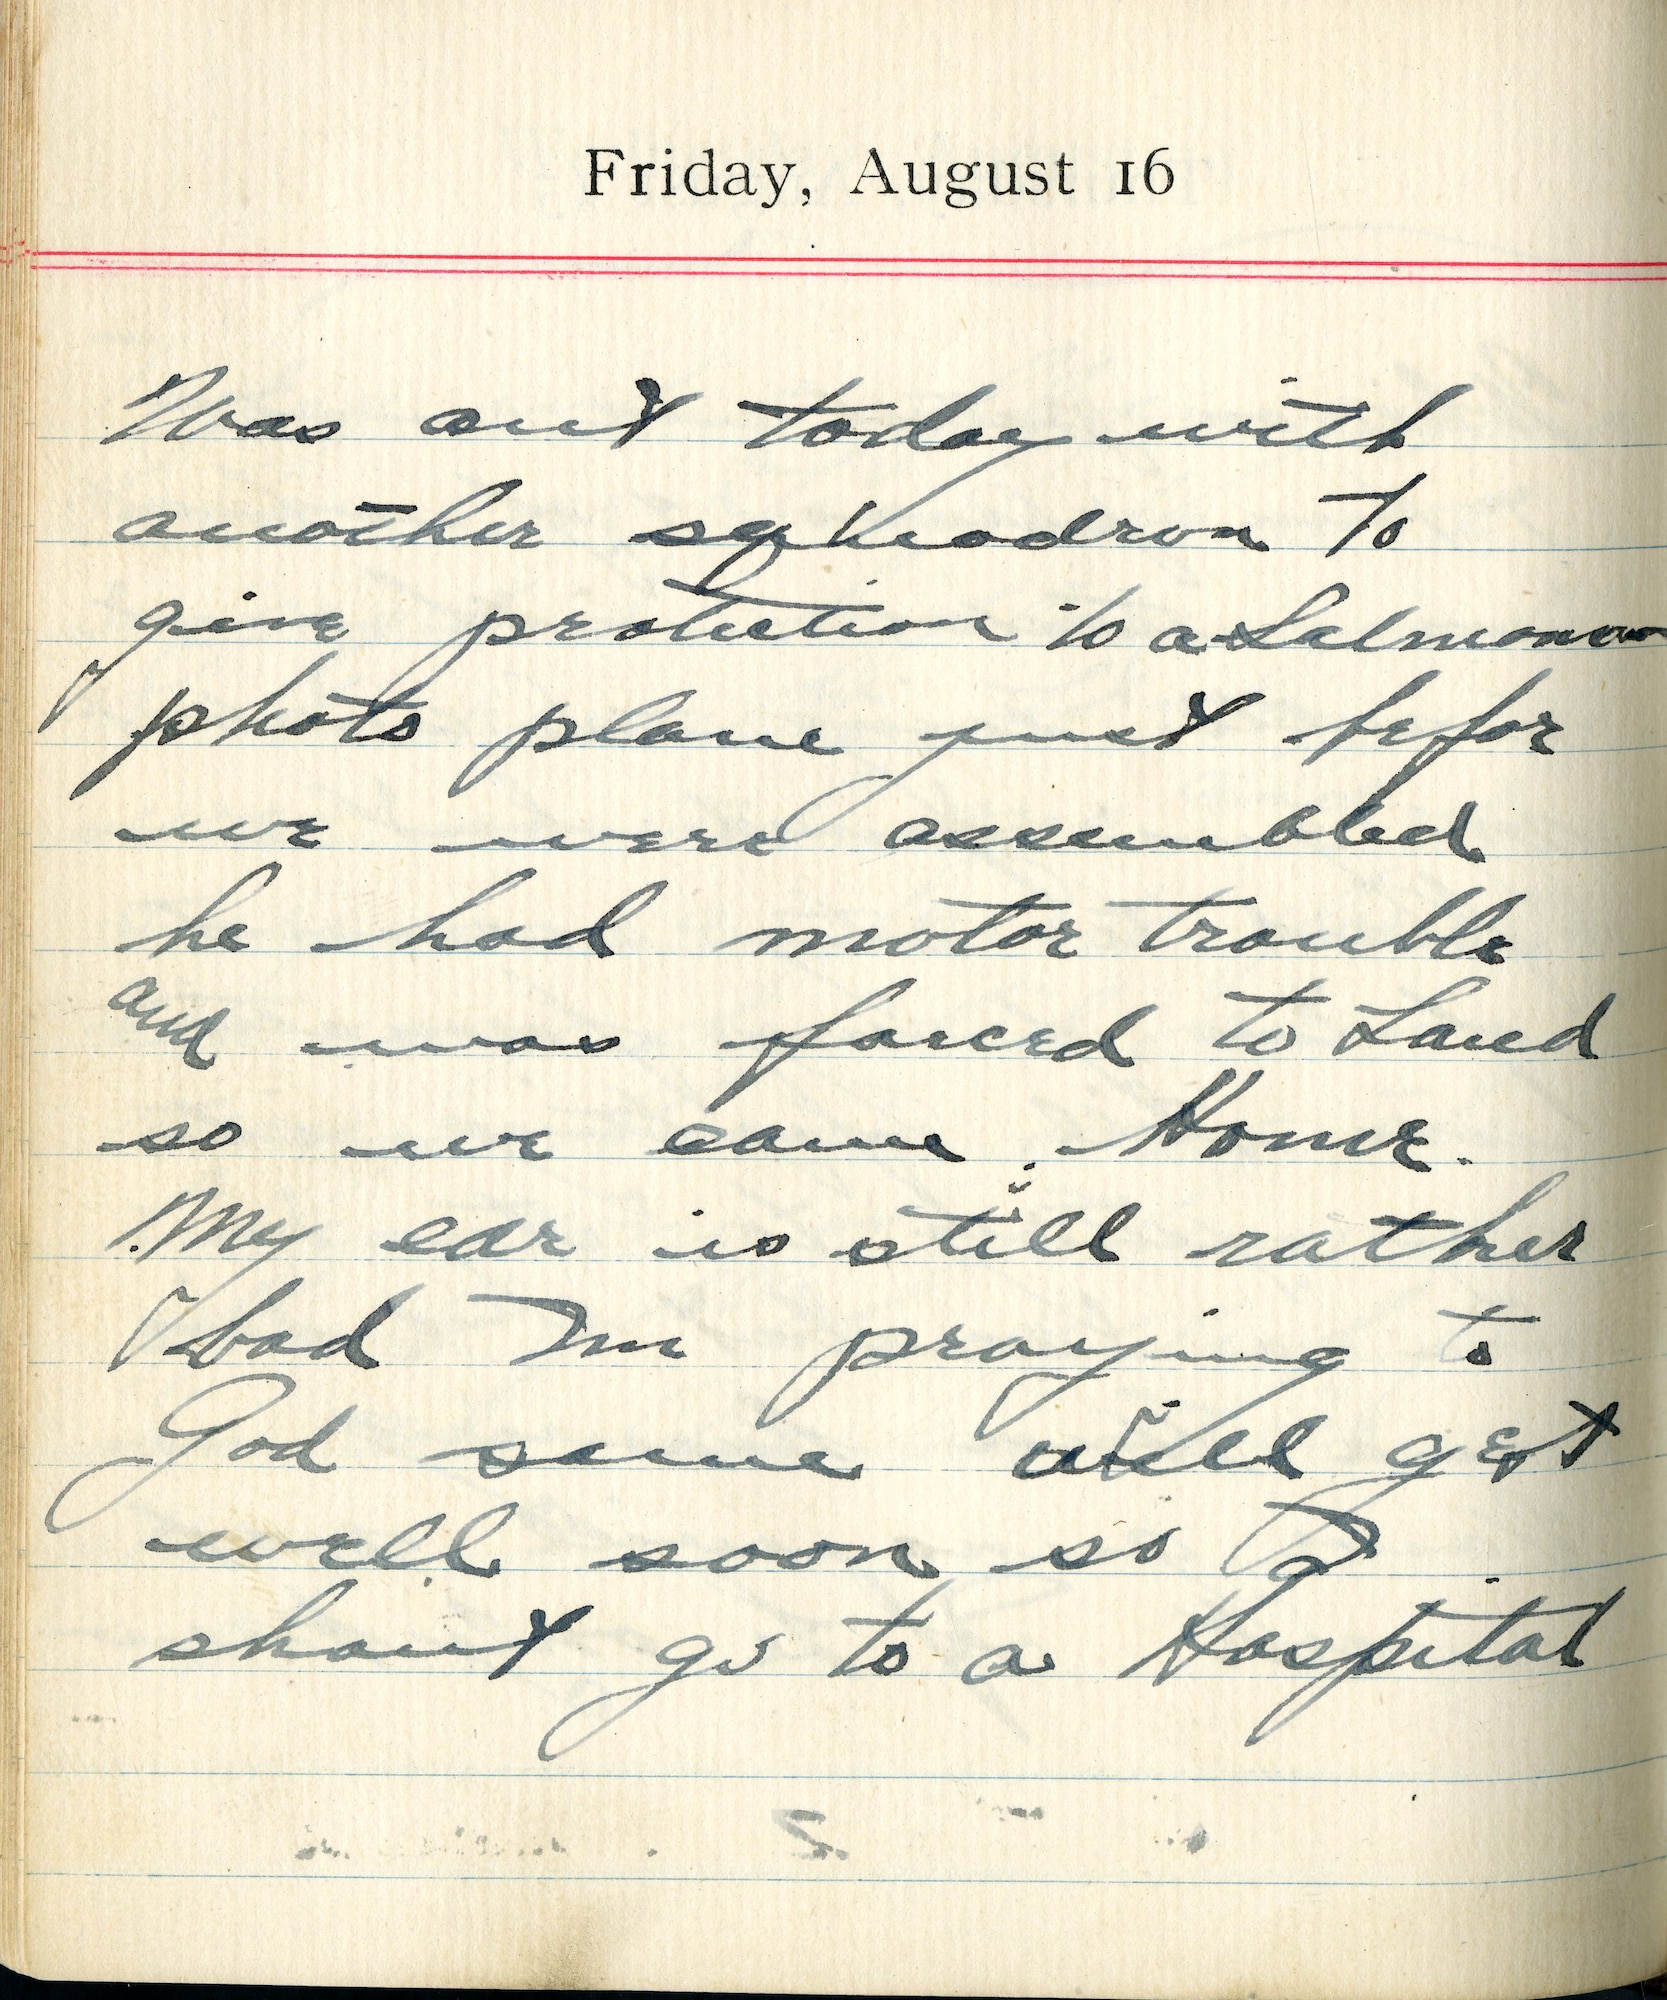 Friday, August 16
Was out today with
another sqhuadron to
give protection to a Salmonson
photo plane just befor
we were assembled
he had motor trouble
and was forced to Land
so we came Home.
My ear is still rather
bad Im praying to
God same will get
well soon so I
shant go to a Hospital